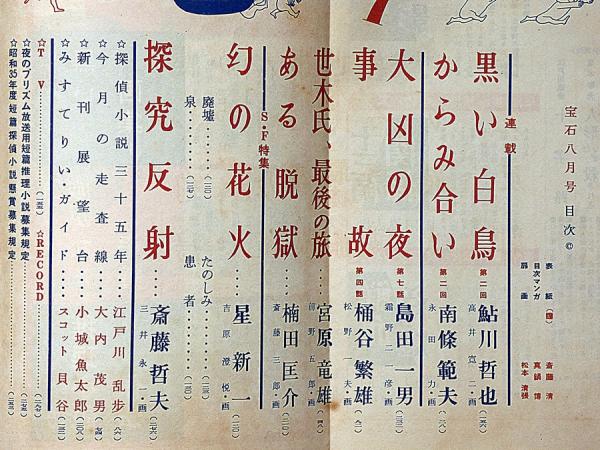 宝石八月号 目次 ©
表紙(国) 斎藤 清
目次マンガ 真鍋 博
扉画 松本 清張
連載
黒い白鳥 第二回 鮎川哲也
高井寛二・画
からみ合い 第二回 南條範夫
永田力・画
大凶の夜 第七話 島田一男
霜野二一彦・画
事故 第四話 桶谷繁雄
松野一夫・画
世木氏、最後の旅 宮原竜雄
前野五郎・画
S・F特集
ある脱獄 楠田匡介
斎藤三郎・画
幻の花火 星新一
吉原澄悦・画
廃墟 たのしみ
泉 患者
探究反射 斎藤哲夫
三井永一・画
☆探偵小説三十五年 江戸川乱歩
☆今月の走査線 大内茂男
☆新刊展望台 小城魚太郎
☆みすてりい・ガイド スコット貝谷
☆TV ☆RECORD
☆夜のプリズム放送用短篇推理小説募集規定
☆昭和35年度短篇探偵小説懸賞募集規定